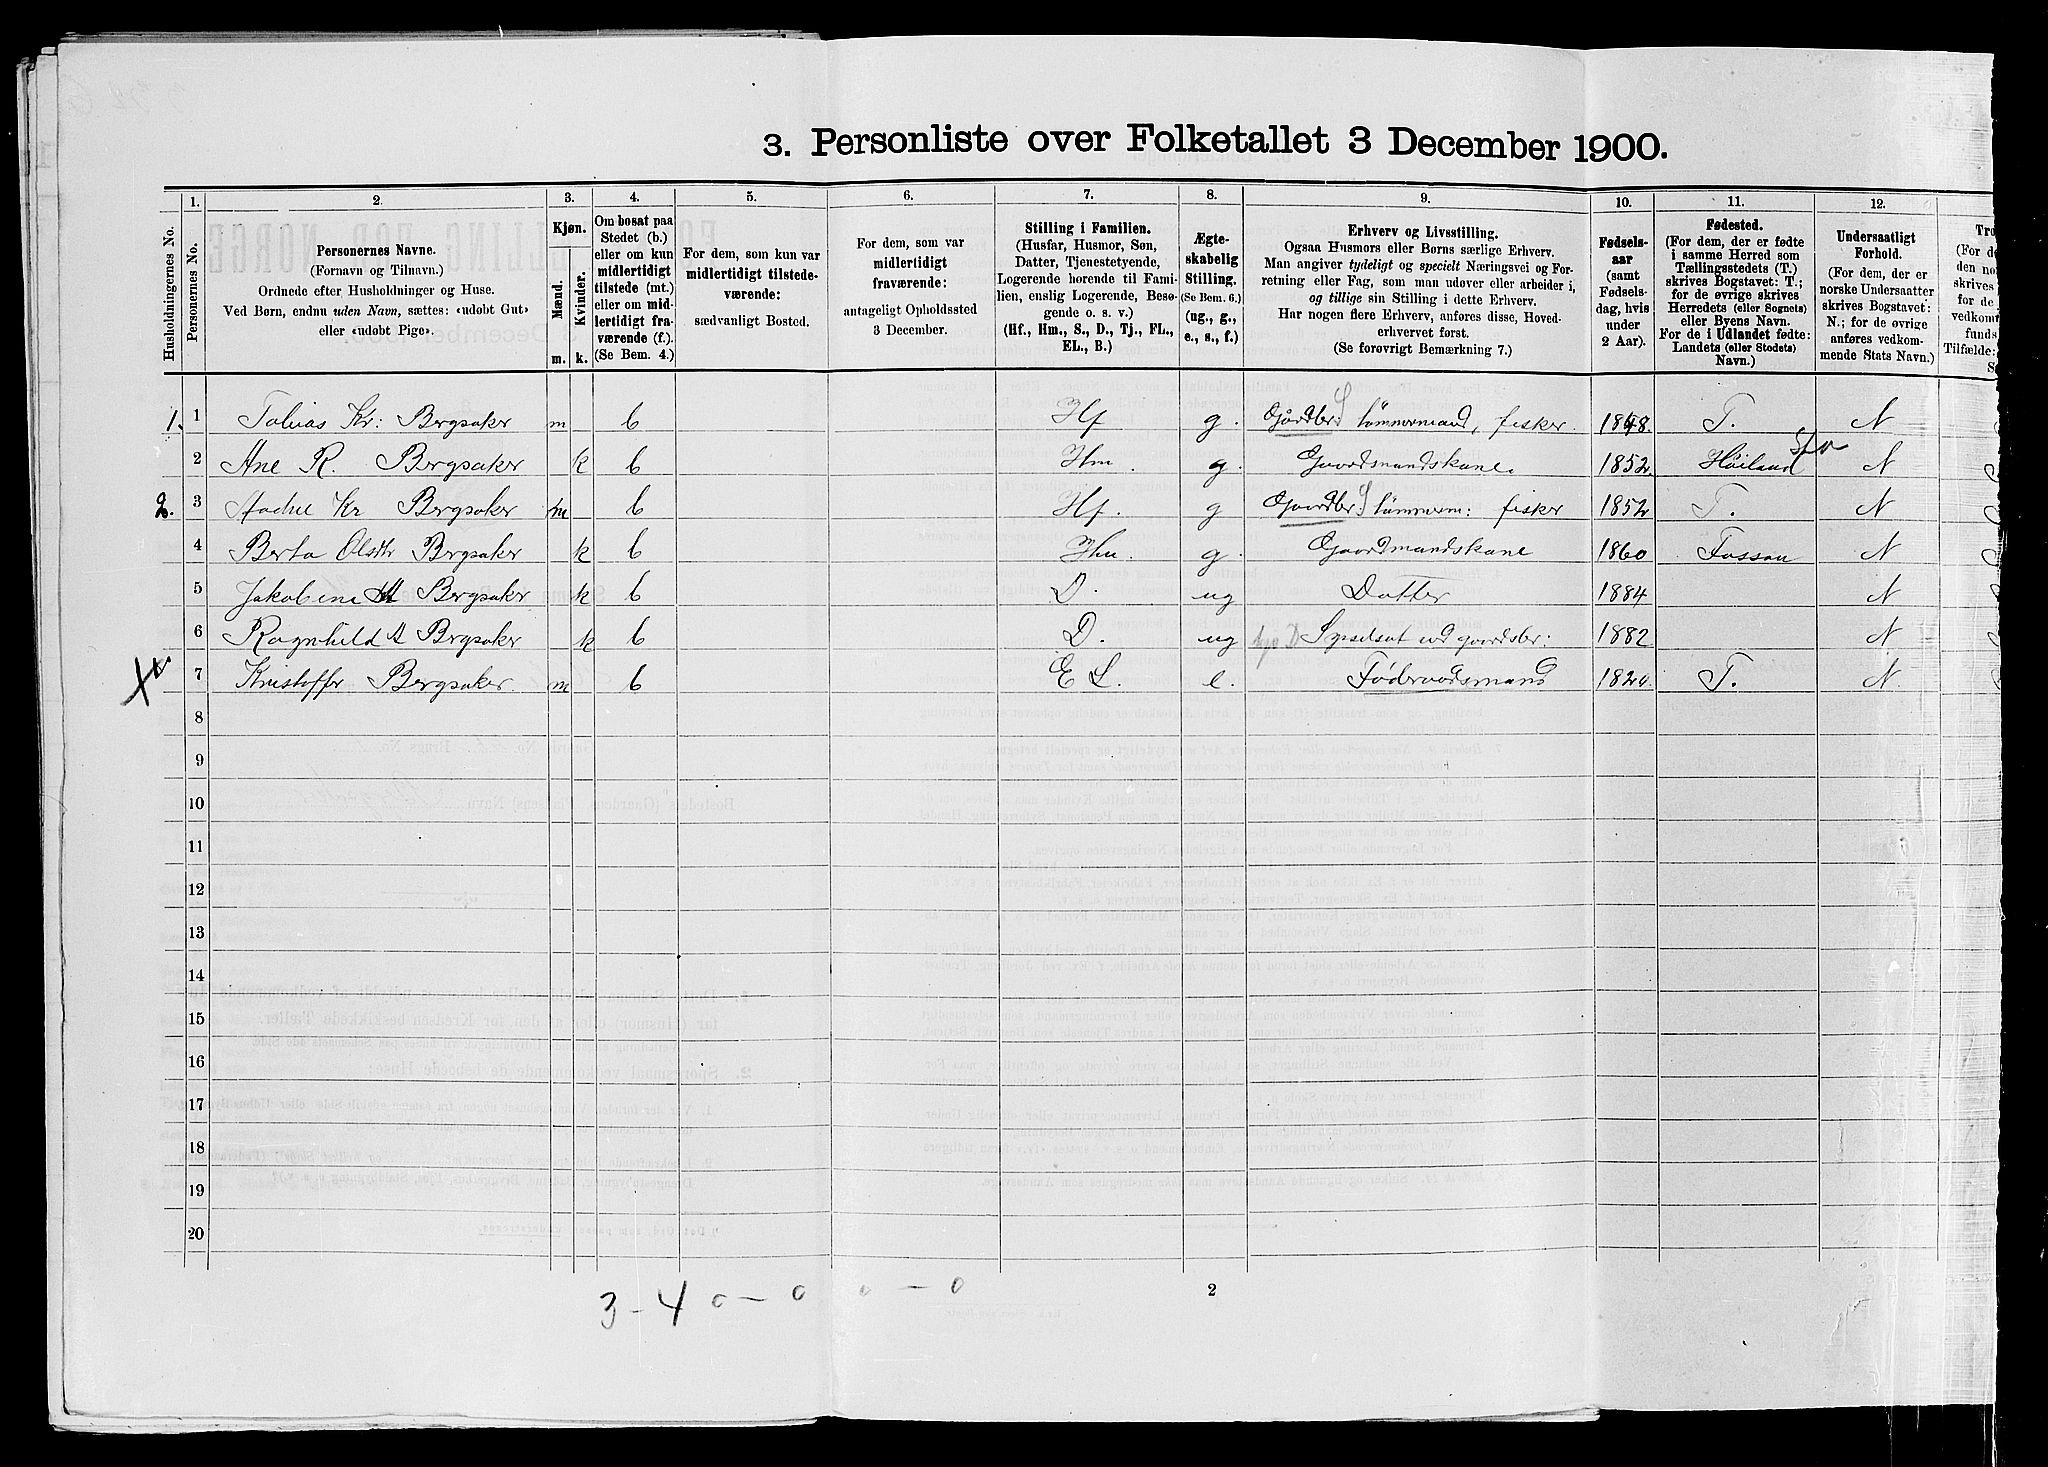 3. Personliste over Folketallet 3 December 1900.
1. 2. 3. 4. 5. 6. 7. 8. 9. 10. 11. 12.
Husholdningernes No.
Personernes No.
Personernes Navne.
(Fornavn og Tilnavn.)
Ordnede efter Husholdninger og Huse.
Ved Børn, endnu uden Navn, sættes: «udøbt Gut»
eller «udøbt Pige».
Kjøn.
Mænd.
Kvinder.
m. k.
Om bosat paa
Stedet (b.)
eller om kun
midlertidigt
tilstede (mt.)
eller om mid-
lertidigt fra-
værende (f.).
(Se Bem. 4.)
For dem, som kun var
midlertidigt tilstede-
værende:
sædvanligt Bosted.
For dem, som var
midlertidigt
fraværende:
antageligt Opholdssted
3 December.
Stilling i Familien.
(Husfar, Husmor, Søn,
Datter, Tjenestetyende,
Logerende hørende til Fami-
lien, enslig Logerende, Besø-
gende o. s. v.)
(Hf., Hm., S., D., Tj., FL.,
EL., B.)
Ægte-
skabelig
Stilling.
(Se Bem. 6.)
(ug., g.,
e., s., f.)
Erhverv og Livsstilling.
Ogsaa Husmors eller Børns særlige Erhverv.
Man angiver tydeligt og specielt Næringsvei og For-
retning eller Fag, som man udøver eller arbeider i,
og tillige sin Stilling i dette Erhverv.
Har nogen flere Erhverv, anføres disse, Hoved-
erhvervet først.
(Se forøvrigt Bemærkning 7.)
Fødsels-
aar
(samt
Fødsels-
dag, hvis
under
2 Aar).
Fødested.
(For dem, der er fødte
i samme Herred som
Tællingsstedets (T.)
skrives Bogstavet: T.;
for de øvrige skrives
Herredets (eller Sognets)
eller Byens Navn.
For de i Udlandet fødte:
Landets (eller Stedets)
Navn.)
Undersaatligt
Forhold.
(For dem, der er
norske Undersaatter
skrives Bogstavet:
N.; for de øvrige
anføres vedkom-
mende Stats Navn.)
1. 1 Tobias Kr: Bergsaker m b Hf. g. Gaardbr. S tømmermand, fisker. 1848. T. N
2 Ane R. Bergsaker k b Hm. g. Gaardsmandskane. 1852. Høiland N
2. 3 Kr Bergsaker m b Hf. g Gaardbr. S tømmerm: fisker 1852 T. N
4 Berta Bergsaker k b Hm. g. Gaardmandskane 1860 Fossan N
5 Jakobine Bergsaker k b D. ug Datter 1884 N
6 Ragnhild A Bergsaker k b D. ug gaardsbr: 1882 N
7 Kristoffer Bergsaker. m b E L. e. Føderaadsmand T. N.
8
9
10
11
12
13
14
15
16
17
18
19
20
3 - 4 0 - 0 0 - 0
2